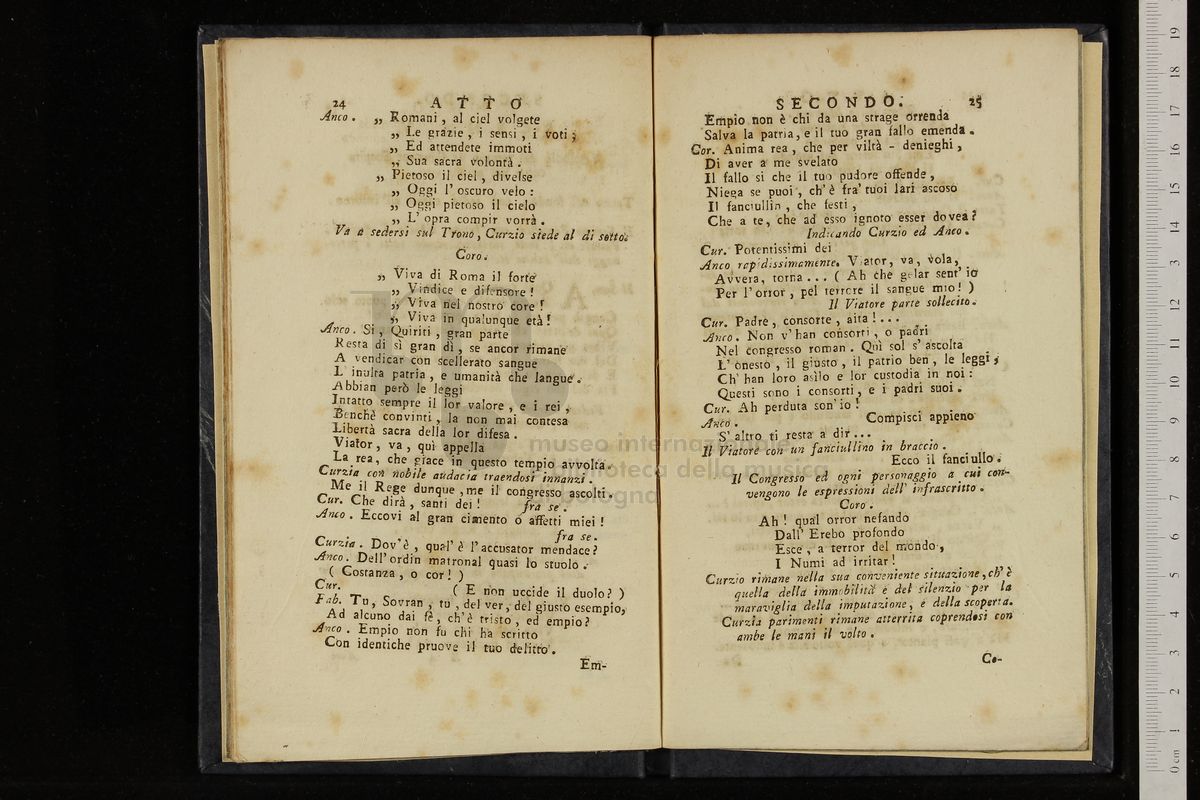 24 ATTO
Anco. „ Romani, al ciel volgete
„ Le grazie, i sensi, i voti;
„ Ed attendete immoti
„ Sua sacra volontà.
„ Pietoso il ciel, divelse
„ Oggi l' oscuro velo:
„ Oggi pietoso il cielo
„ L' opra compir vorrà.
Va a sedersi sul Trono, Curzio siede al di sotto.
Coro.
„ Viva di Roma il forte
„ Vindice e difensore!
„ Viva nel nostro core!
„ Viva in qualunque età!
Anco. Si, Quiriti, gran parte
Resta di sì gran dì, se ancor rimane
A vendicar con scellerato sangue
L' inulta patria, e umanità che langue.
Abbian però le leggi
Intatto sempre il lor valore, e i rei,
Benchè convinti, la non mai contesa
Libertà sacra della lor difesa.
Viator, va, quì appella
La rea, che giace in questo tempio avvolta.
Curzia con nobile audacia traendosi innanzi.
Me il Rege dunque, me il congresso ascolti.
Cur. Che dirà, santi dei! fra se.
Anco. Eccovi al gran cimento o affetti miei!
fra se.
Curzia. Dov'è, qual' è l'accusator mendace?
Anco. Dell'ordin matronal quasi lo stuolo.
( Costanza, o cor! )
Cur. ( E non uccide il duolo? )
Fab. Tu, Sovran, tu, del ver, del giusto esempio,
Ad alcuno dai fè, ch'è tristo, ed empio?
Anco. Empio non fu chi ha scritto
Con identiche pruove il tuo delitto.
Em-
SECONDO. 25
Empio non è chi da una strage orrenda
Salva la patria, e il tuo gran fallo emenda.
Cor. Anima rea, che per viltà - denieghi,
Di aver a me svelato
Il fallo si che il tuo pudore offende,
Niega se puoi, ch'è fra' tuoi lari ascoso
Il fanciullin, che festi,
Che a te, che ad esso ignoto esser dovea?
Indicando Curzio ed Anco.
Cur. Potentissimi dei
Anco rapidissimamente. Viator, va, vola,
Avvera, torna... ( Ah che gelar sent' io
Per l'orror, pel terrore il sangue mio! )
Il Viatore parte sollecito.
Cur. Padre, consorte, aita!...
Anco. Non v'han consorti, o padri
Nel congresso roman. Quì sol s' ascolta
L' onesto, il giusto, il patrio ben, le leggi;
Ch' han loro asilo e lor custodia in noi:
Questi sono i consorti, e i padri suoi.
Cur. Ah perduta son'io!
Anco. Compisci appieno
S' altro ti resta a dir...
Il Viatore con un fanciullino in braccio.
Ecco il fanciullo.
Il Congresso ed ogni personaggio a cui con-
vengono le espressioni dell' infrascritto.
Coro.
Ah! qual orror nefando
Dall' Erebo profondo
Esce, a terror del mondo,
I Numi ad irritar!
Curzio rimane nella sua conveniente situazione, ch' è
quella della immobilità e del silenzio per la
maraviglia della imputazione, e della scoperta.
Curzia parimenti rimane atterrita coprendosi con
ambe le mani il volto.
Co-
museo internazionale
e biblioteca della musica
di bologna
0 cm 1 2 3 4 5 6 7 8 9 10 11 12 13 14 15 16 17 18 19